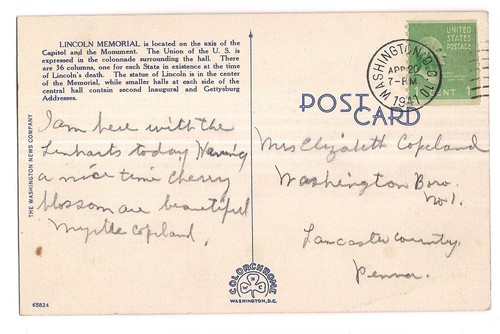 LINCOLN MEMORIAL is located on the axis of the
Capitol and the Monument. The Union of the U. S. is
expressed in the colonnade surrounding the hall. There
are 36 columns, one for each State in existence at the time
of Lincoln's death. The statue of Lincoln is in the center
of the Memorial, while smaller halls at each side of the
central hall contain second Inaugural and Gettysburg
Addresses.
THE WASHINGTON NEWS COMPANY
I am here with the
Lenharts today. Having
a nice time cherry
blossom are beautiful
Myrtle Copeland.
65824
COLORCHROME
WASHINGTON, D.C.
POST CARD
WASHINGTON, D.C.
APR 20
7-PM
1941
UNITED
STATES
POSTAGE
CENT 1
Mrs Elizabeth Copeland
Washington Boro.
No 1.
Lancaster County.
Penna.